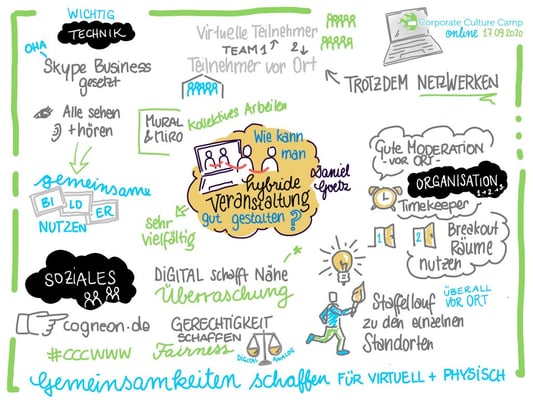 WICHTIG
TECHNIK
OHA
Skype Business
gesetzt
Alle sehen
+ hören
gemeinsame
BI LD ER
NUTZEN
Virtuelle Teilnehmer
TEAM 1 & 2
Teilnehmer vor Ort
MURAL
& MIRO
Kollektives Arbeiten
Corporate Culture Camp
online 17 09 2020
TROTZDEM NETZWERKEN
Wie kann
man
hybride
VERANSTALTUNG
gut gestalten?
Daniel
Goetz
sehr
vielfältig
Gute MODERATION
-VOR ORT-
ORGANISATION
Timekeeper
1 2
Breakout
Räume
nutzen
SOZIALES
cogneon.de
#CCCWWW
DiGiTAL schafft Nähe
Überraschung
GERECHTIGKEIT
SCHAFFEN
Fairness
DIGITAL ANALOG
Staffellauf
zu den einzelnen
Standorten
ÜBERALL
VOR ORT
Gemeinsamkeiten schaffen FÜR VIRTUELL + PHYSISCH